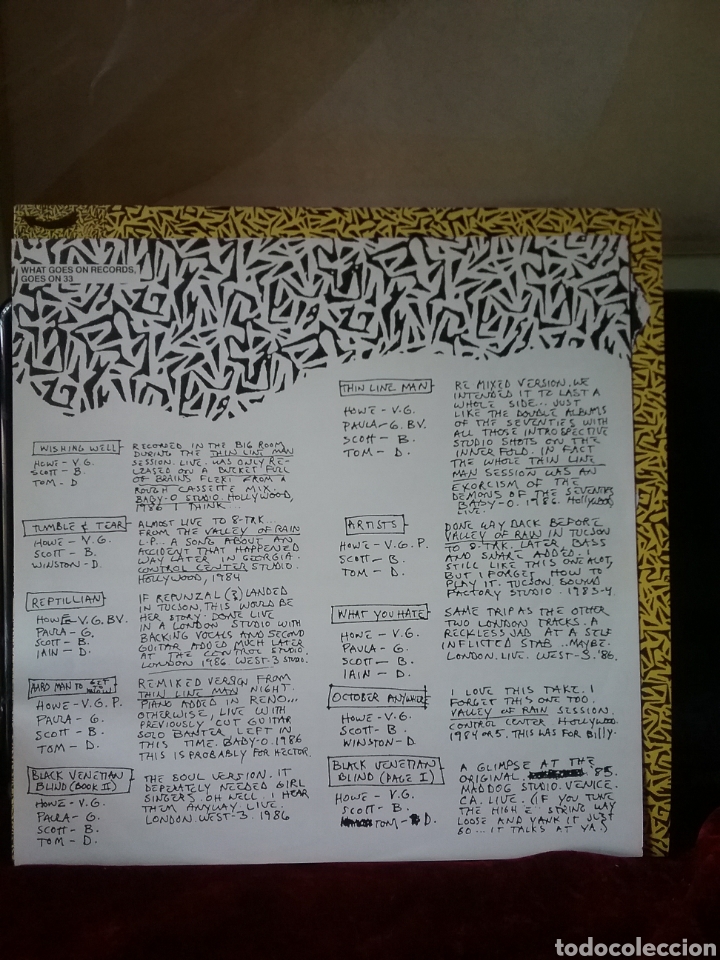 WHAT GOES ON RECORDS,
GOES ON 33
WISHING WELL
HOWE - V.G.
SCOTT - B.
TOM - D
RECORDED IN THE BIG ROOM
DURING THE THIN LINE MAN
SESSION. LIVE. WAS ONLY RE-
LEASED ON A BUCKET FULL
OF BRAINS FLEXI FROM A
ROUGH CASSETTE MIX.
BABY-O STUDIO HOLLYWOOD,
1986 I THINK...
TUMBLE & TEAR
HOWE - V.G.
SCOTT - B.
WINSTON - D.
ALMOST LIVE TO 8-TRK...
FROM THE VALLEY OF RAIN
L.P... A SONG ABOUT AN
ACCIDENT THAT HAPPENED
WAY LATER IN GEORGIA.
CONTROL CENTER STUDIO.
HOLLYWOOD, 1984
REPTILLIAN
HOWE - V.G. BV.
PAULA - G.
SCOTT - B.
IAIN - D.
IF REPUNZAL (?) LANDED
IN TUCSON, THIS WOULD BE
HER STORY. DONE LIVE
IN A LONDON STUDIO WITH
BACKING VOCALS AND SECOND
GUITAR ADDED MUCH LATER
AT THE CONTROL STUDIO.
LONDON 1986 WEST-3 STUDIO.
HARD MAN TO GET
HOWE - V.G. P.
PAULA - G.
SCOTT - B.
TOM - D.
REMIXED VERSION FROM
THIN LINE MAN NIGHT.
PIANO ADDED IN RENO...
OTHERWISE, LIVE WITH
PREVIOUSLY CUT GUITAR
SOLO BANTER LEFT IN
THIS TIME. BABY-O. 1986
THIS IS PROBABLY FOR HECTOR.
BLACK VENETIAN
BLIND (BOOK II)
HOWE - V.G.
PAULA - G.
SCOTT - B.
TOM - D.
THE SOUL VERSION. IT
DEPERATELY NEEDED GIRL
SINGERS. OH WELL. I HEAR
THEM ANYWAY LIVE.
LONDON WEST-3. 1986
THIN LINE MAN
HOWE - V.G.
PAULA - G. BV.
SCOTT - B.
TOM - D.
RE MIXED VERSION. WE
INTENDED IT TO LAST A
WHOLE SIDE... JUST
LIKE THE DOUBLE ALBUMS
OF THE SEVENTIES WITH
ALL THOSE INTROSPECTIVE
STUDIO SHOTS ON THE
INNER FOLD. IN FACT
THE WHOLE THIN LINE
MAN SESSION WAS AN
EXORCISM OF THE
DEMONS OF THE SEVENTIES
BABY-O. 1986. HOLLYWOOD
LIVE.
ARTISTS
HOWE - V.G. P.
SCOTT - B.
TOM - D.
DONE WAY BACK BEFORE
VALLEY OF RAIN IN TUCSON
TO 8-TRK. LATER, BASS
AND SNARE ADDED. I
STILL LIKE THIS ONE ALOT,
BUT I FORGET HOW TO
PLAY IT. TUCSON. SOUND
FACTORY STUDIO. 1983-4.
WHAT YOU HATE
HOWE - V.G.
PAULA - G.
SCOTT - B.
IAIN - D.
SAME TRIP AS THE OTHER
TWO LONDON TRACKS. A
RECKLESS JAB AT A SELF
INFLICTED STAB.. MAYBE.
LONDON. LIVE. WEST-3. '86.
OCTOBER ANYWHERE
HOWE - V.G.
SCOTT - B.
WINSTON - D.
I LOVE THIS TAKE. I
FORGET THIS ONE TOO.
VALLEY OF RAIN SESSION.
CONTROL CENTER HOLLYWOOD
1984 OR 5. THIS WAS FOR BILLY.
BLACK VENETIAN
BLIND (PAGE I)
HOWE - V.G.
SCOTT - B.
TOM - D.
A GLIMPSE AT THE
ORIGINAL. '85.
MADDOG STUDIO. VENICE.
CA. LIVE. (IF YOU TUNE
THE HIGH E STRING WAY
LOOSE AND YANK IT JUST
SO... IT TALKS AT YA.)
todocoleccion